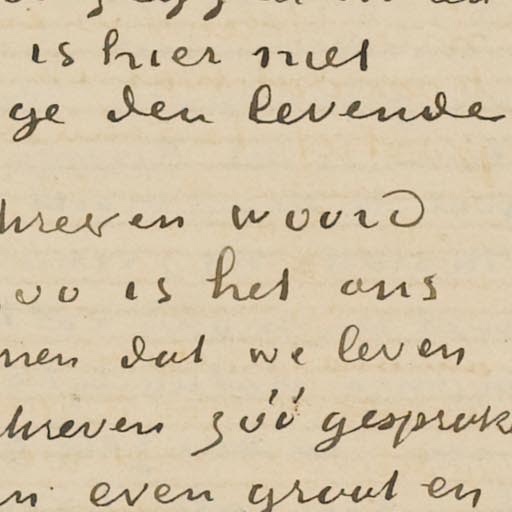 is hier niet
ge den levende
hreven woord
zoo is het ons
men dat we leven
hreven zóó gesprok
n even groot en